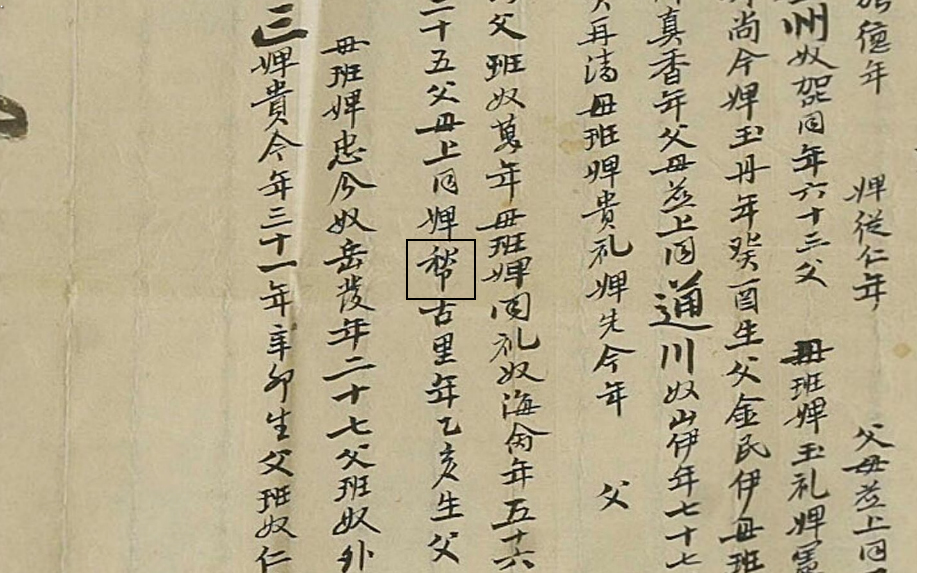 德年 婢從仁年 父母茲上同
州奴 同年六十三父 母班婢玉礼婢
尚今婢玉丹年癸酉生父金民伊母班
真香年父母茲上同通川奴山伊年七十七
再清母班婢貴礼婢先今年 父
父班奴萬年母班婢同礼奴海金年五十六
二十五父母上同婢 古里年乙亥生父
母班婢忠今奴岳發年二十七父班奴外
三婢貴今年三十一年辛卯生父班奴仁